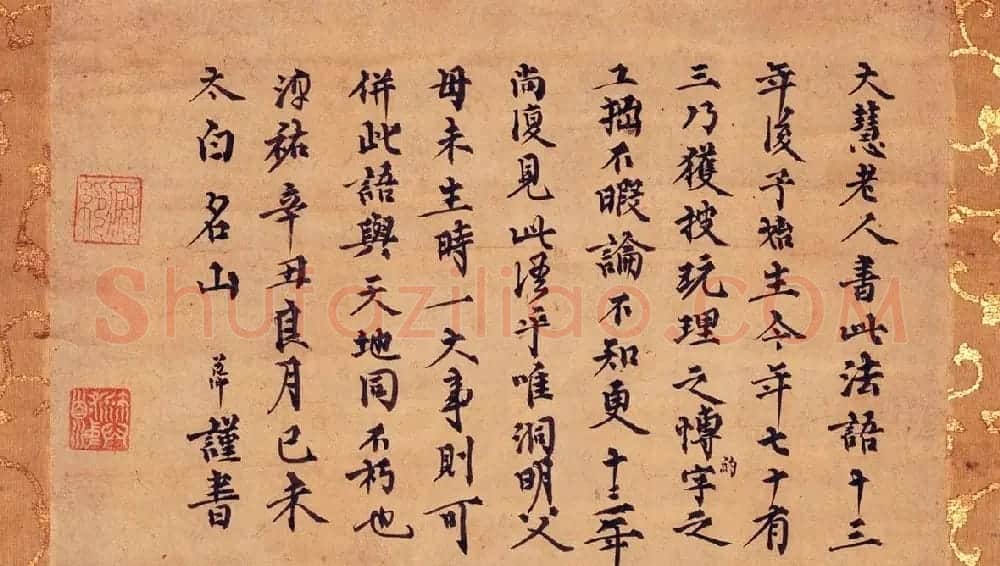 大慧老人書此法語十三
年後予始生今年七十有
三乃獲披玩理之慱的字之
工拙不暇論不知更十三年
尚復見此語乎唯洞明父
母未生時一大事則可
併此語與天地同不朽也
淳祐辛丑良月已未
太白名山 謹書
Shufaziliao.COM